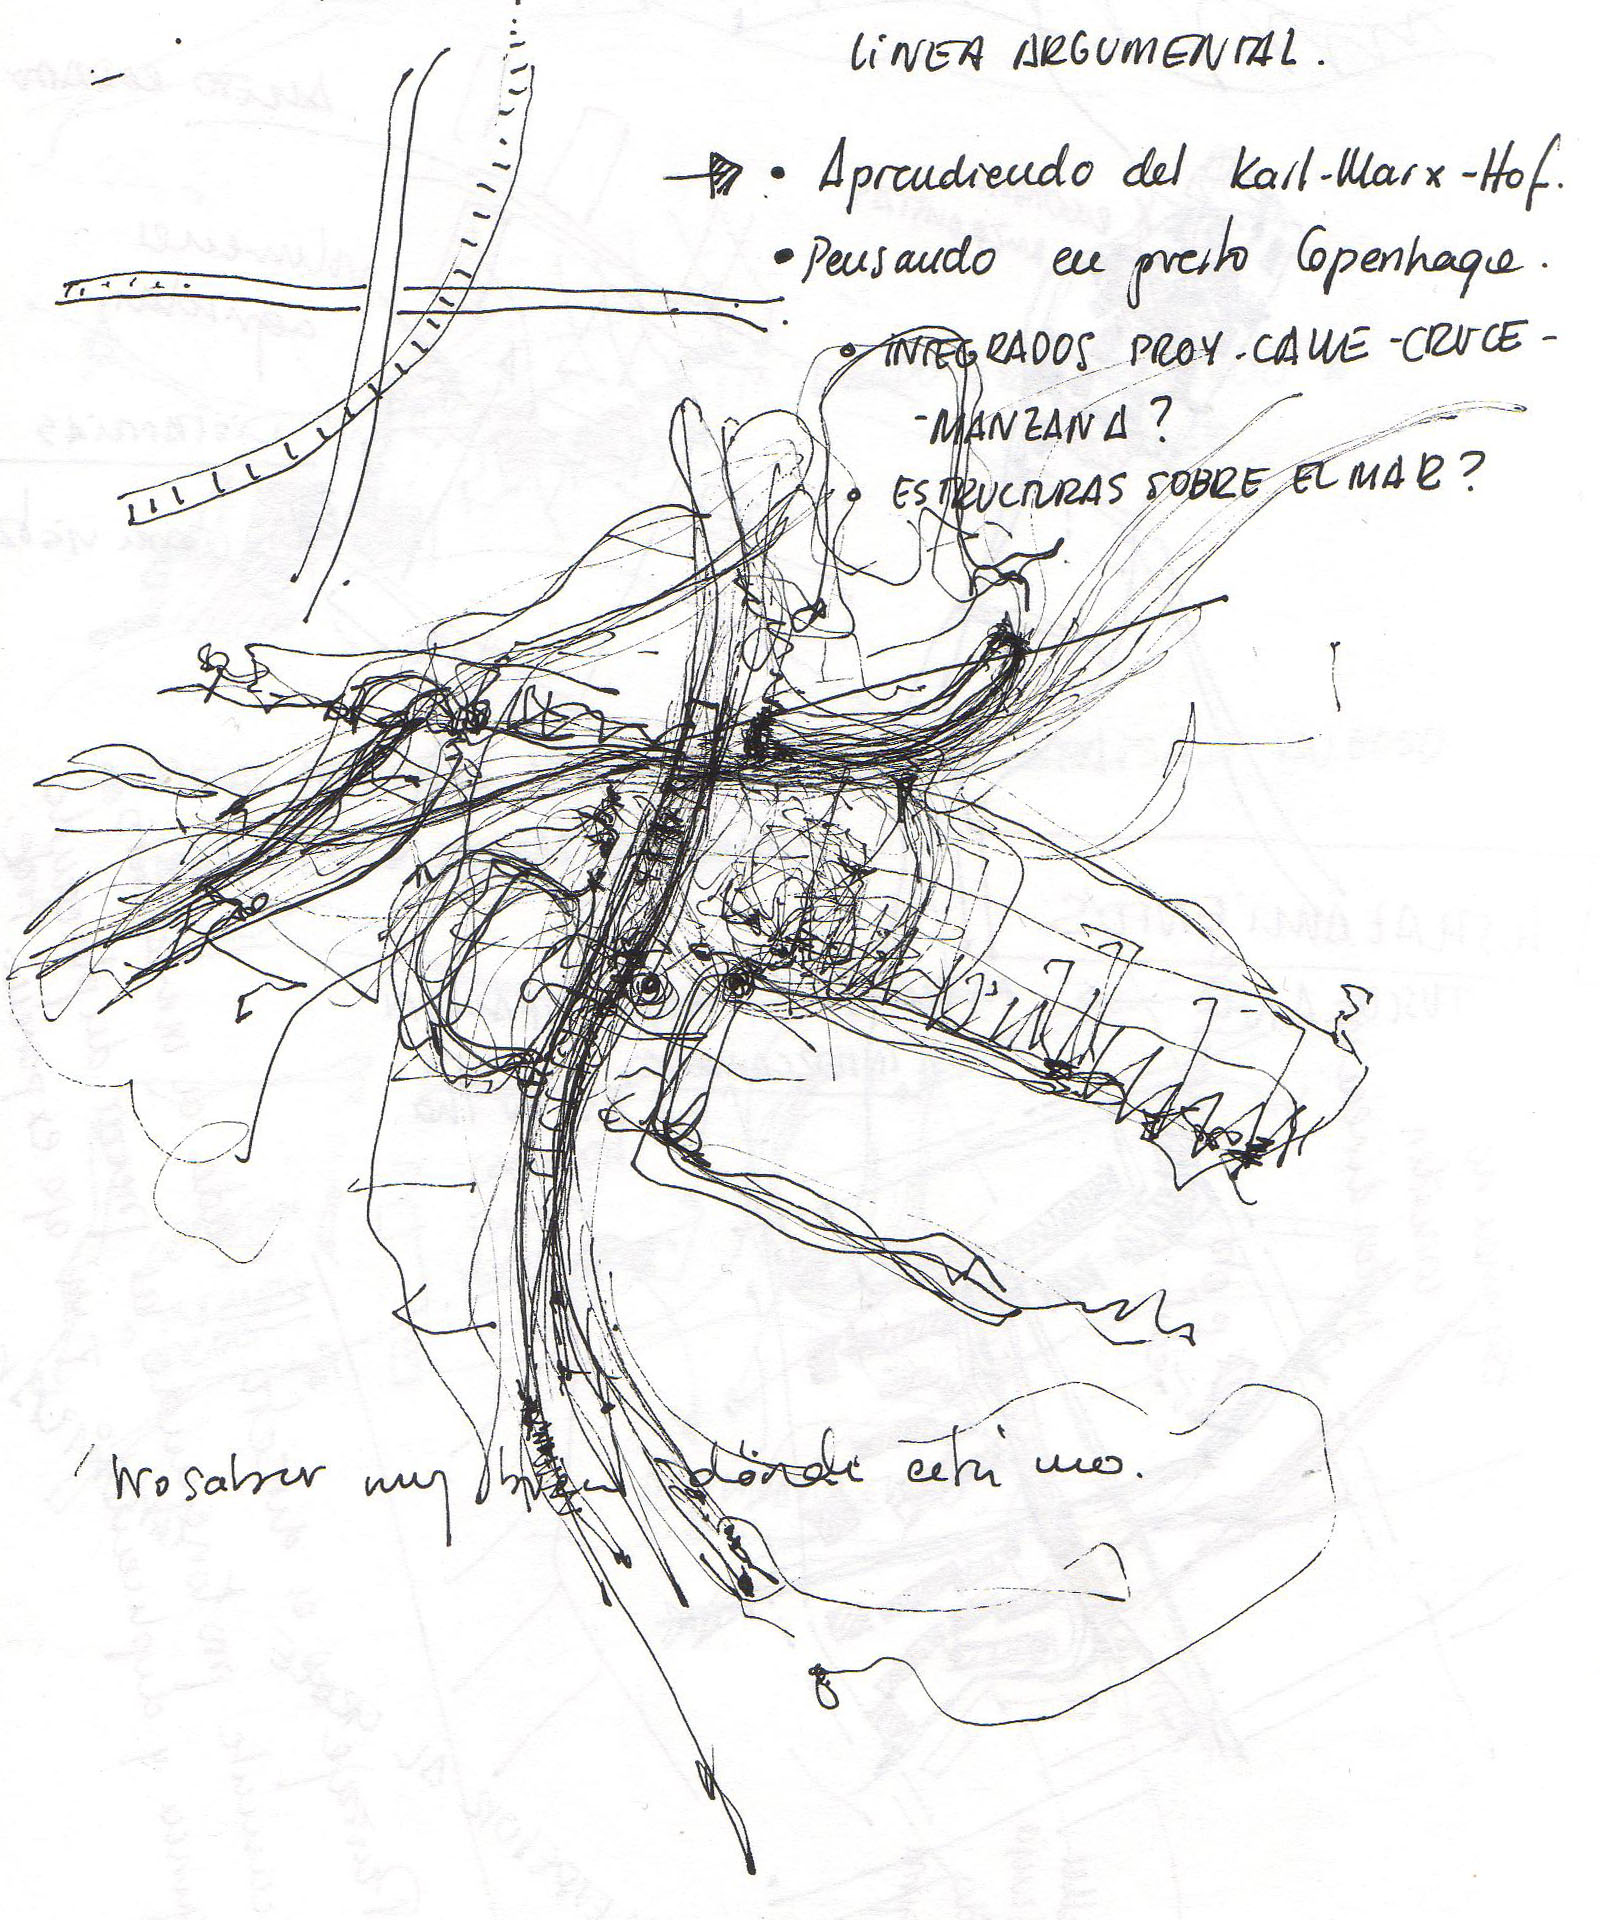 LINEA ARGUMENTAL.
• Aprendiendo del Karl-Marx-Hof.
• Pensando en preito Copenhague.
• INTEGRADOS PROY. CALLE - CRUCE -
- MANZANA?
• ESTRUCTURAS SOBRE EL MAR?
No saber muy bien dónde está uno.